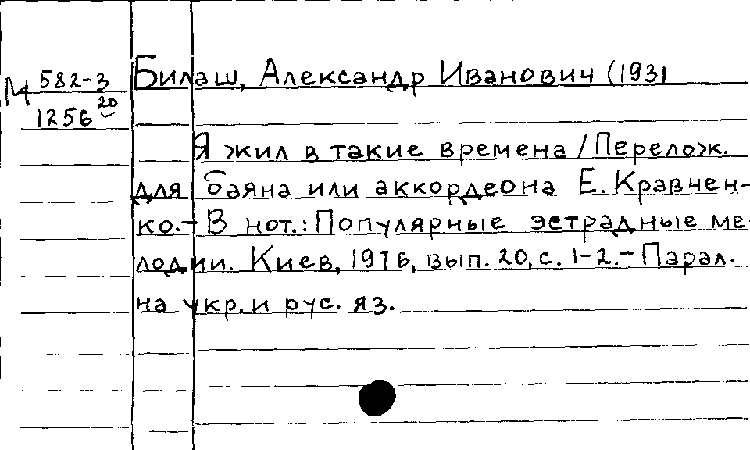 М 582-3
1256 20
Билаш, Александр Иванович (1931
Я жил в такие времена / Перелож.
для баяна или аккордеона Е. Кравчен-
ко.- В нот.: Популярные эстрадные ме-
лодии. Киев, 1976, вып. 20, с. 1-2.- Парал.
на укр. и рус. яз.